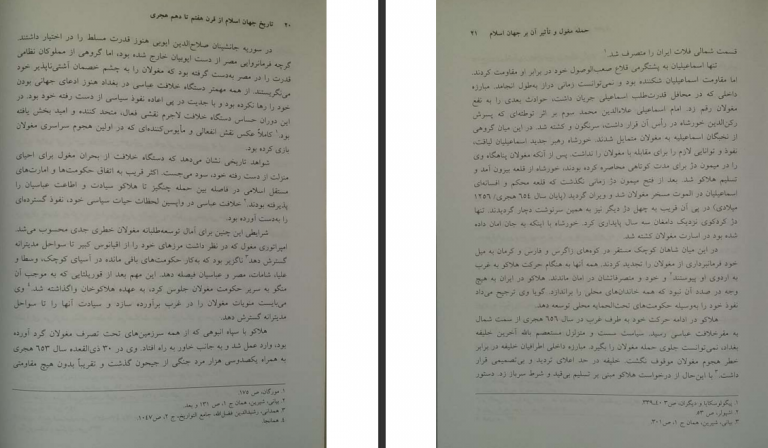 ۲۰ تاریخ جهان اسلام از قرن هفتم تا دهم هجری
در سوریه جانشینان صلاح‌الدین ایوبی هنوز قدرت مسلط را در اختیار داشتند.
گرچه فرمانروایی مصر از دست ایوبیان خارج شده بود، اما گروهی از مملوکان نظامی
قدرت را در مصر به‌دست گرفته بود که مغولان را به چشم خصمان آشتی‌ناپذیر خود
می‌نگریستند. از همه مهمتر دستگاه خلافت عباسی در بغداد هنوز ادعای جهانی بودن
خود را رها نکرده بود و با جدیت در پی اعاده نفوذ سیاسی از دست رفته خود بود. در
این دوران حساس دستگاه خلافت لاجرم نقشی فعال، متحد کننده و امید بخش یافته
بود.۱ کاملاً عکس نقش انفعالی و مأیوس‌کننده‌ای که در اولین هجوم سراسری مغولان
بازی کرده بود.
شواهد تاریخی نشان می‌دهد که دستگاه خلافت از بحران مغول برای احیای
منزلت از دست رفته خود، سود می‌جست. اکثر قریب به اتفاق حکومت‌ها و امارت‌های
مستقل اسلامی در فاصله بین حمله چنگیز تا هلاکو سیادت و اطاعت عباسیان را
پذیرفته بودند.۲ خلافت عباسی در واپسین لحظات حیات سیاسی خود، نفوذ گسترده‌ای
را به‌دست آورده بود.
شرایطی این چنین برای آمال توسعه‌طلبانه مغولان خطری جدی محسوب می‌شد.
امپراتوری مغول که در نظر داشت مرزهای خود را از اقیانوس کبیر تا سواحل مدیترانه
گسترش دهد۳ ناگزیر بود که به‌کار حکومت‌های باقی مانده در آسیای کوچک، وسطا و
علیا، شامات، مصر و عباسیان فیصله دهد. این مهم بعد از قوریلتایی که به موجب آن
منگو به سریر حکومت مغولان جلوس کرد، به عهده هلاکوخان واگذاشته شد.۴ وی
می‌بایست منویات مغولان را در غرب برآورده سازد و سیادت آنها را تا سواحل
مدیترانه گسترش دهد.
هلاکو با سپاه انبوهی که از همه سرزمین‌های تحت تصرف مغولان گرد آورده
بود، وارد عمل شد و به جانب خاور به راه افتاد. وی در ۳۰ ذی‌القعده سال ۶۵۳ هجری
به همراه یکصدوسی هزار مرد جنگی از جیحون گذشت و تقریباً بدون هیچ مقاومتی
۱. مورگان، ص ۱۷۵.
۲. بیانی، شیرین، همان ج ۱، ص ۱۳۱ و بعد.
۳. همدانی، رشیدالدین فضل‌الله، جامع التواریخ، ج ۲، ص ۱۰۴۷.
۴. همانجا.
حمله مغول و تأثیر آن بر جهان اسلام ۲۱
قسمت شمالی فلات ایران را متصرف شد.۱
تنها اسماعیلیان به پشتگرمی قلاع صعب‌الوصول خود در برابر او مقاومت کردند.
اما مقاومت اسماعیلیان شکننده بود و نمی‌توانست زمانی دراز به‌طول انجامد. مبارزه
داخلی که در محافل قدرت‌طلب اسماعیلی جریان داشت، حوادث بعدی را به نفع
مغولان رقم زد. امام اسماعیلی علاءالدین محمد سوم بر اثر توطئه‌ای که پسرش
رکن‌الدین خورشاه در رأس آن قرار داشت، سرنگون و کشته شد. در این میان گروهی
از نخبگان اسماعیلیه به مغولان متمایل شدند. خورشاه رهبر جدید اسماعیلیان لیاقت،
نفوذ و توانایی لازم را برای مقابله با مغولان را نداشت. پس از آنکه مغولان پناهگاه وی
را در میمون دژ برای مدت کوتاهی محاصره کرده بودند، خورشاه از قلعه بیرون آمد و
تسلیم هلاکو شد. بعد از فتح میمون دژ زمانی نگذشت که قلعه محکم و افسانه‌ای
اسماعیلیان در الموت مسخر مغولان شد و ویران گردید (پایان سال ۶۵۴ هجری / ۱۲۵۶
میلادی) در پی آن قریب به چهل دژ دیگر نیز به همین سرنوشت دچار گردیدند. تنها
دژ گردکوی نزدیک دامغان سه سال پایداری کرد. خورشاه با اینکه به جان امان داده
شده بود در اسارت مغولان کشته شد.
در این میان شاهان کوچک مستقر در کوه‌های زاگرس و فارس و کرمان به میل
خود فرمانبرداری از مغولان را تجدید کردند. همه آنها به هنگام حرکت هلاکو به غرب
به اردوی او پیوستند۲ و خود و متصرفاتشان در امان ماندند. هلاکو در ایران به هیچ
وجه در صدد آن نبود که همه خاندان‌های محلی را براندازد. گویا وی ترجیح می‌داد
نفوذ خود را به‌وسیله حکومت‌های تحت‌الحمایه محلی توسعه دهد.
هلاکو در ادامه حرکت خود به طرف غرب در سال ۶۵۶ هجری از سمت شمال
به مقر خلافت عباسی رسید. سیاست سست و متزلزل مستعصم بالله آخرین خلیفه
بغداد، نمی‌توانست جلوی حمله مغولان را بگیرد. مبارزه داخلی اطرافیان خلیفه در برابر
خطر هجوم مغولان موقوف نگشت. خلیفه در حد اعلای تردید و بی‌تصمیمی قرار
داشت.۳ با این‌حال از درخواست هلاکو مبنی بر تسلیم بی‌قید و شرط سرباز زد. دستور
۱. پیگولوسکایا و دیگران، ص ۴۰-۳۳۹.
۲. اشپولر، ص ۵۳.
۳. بیانی، شیرین، همان ج ۱، ص ۳۰۱.